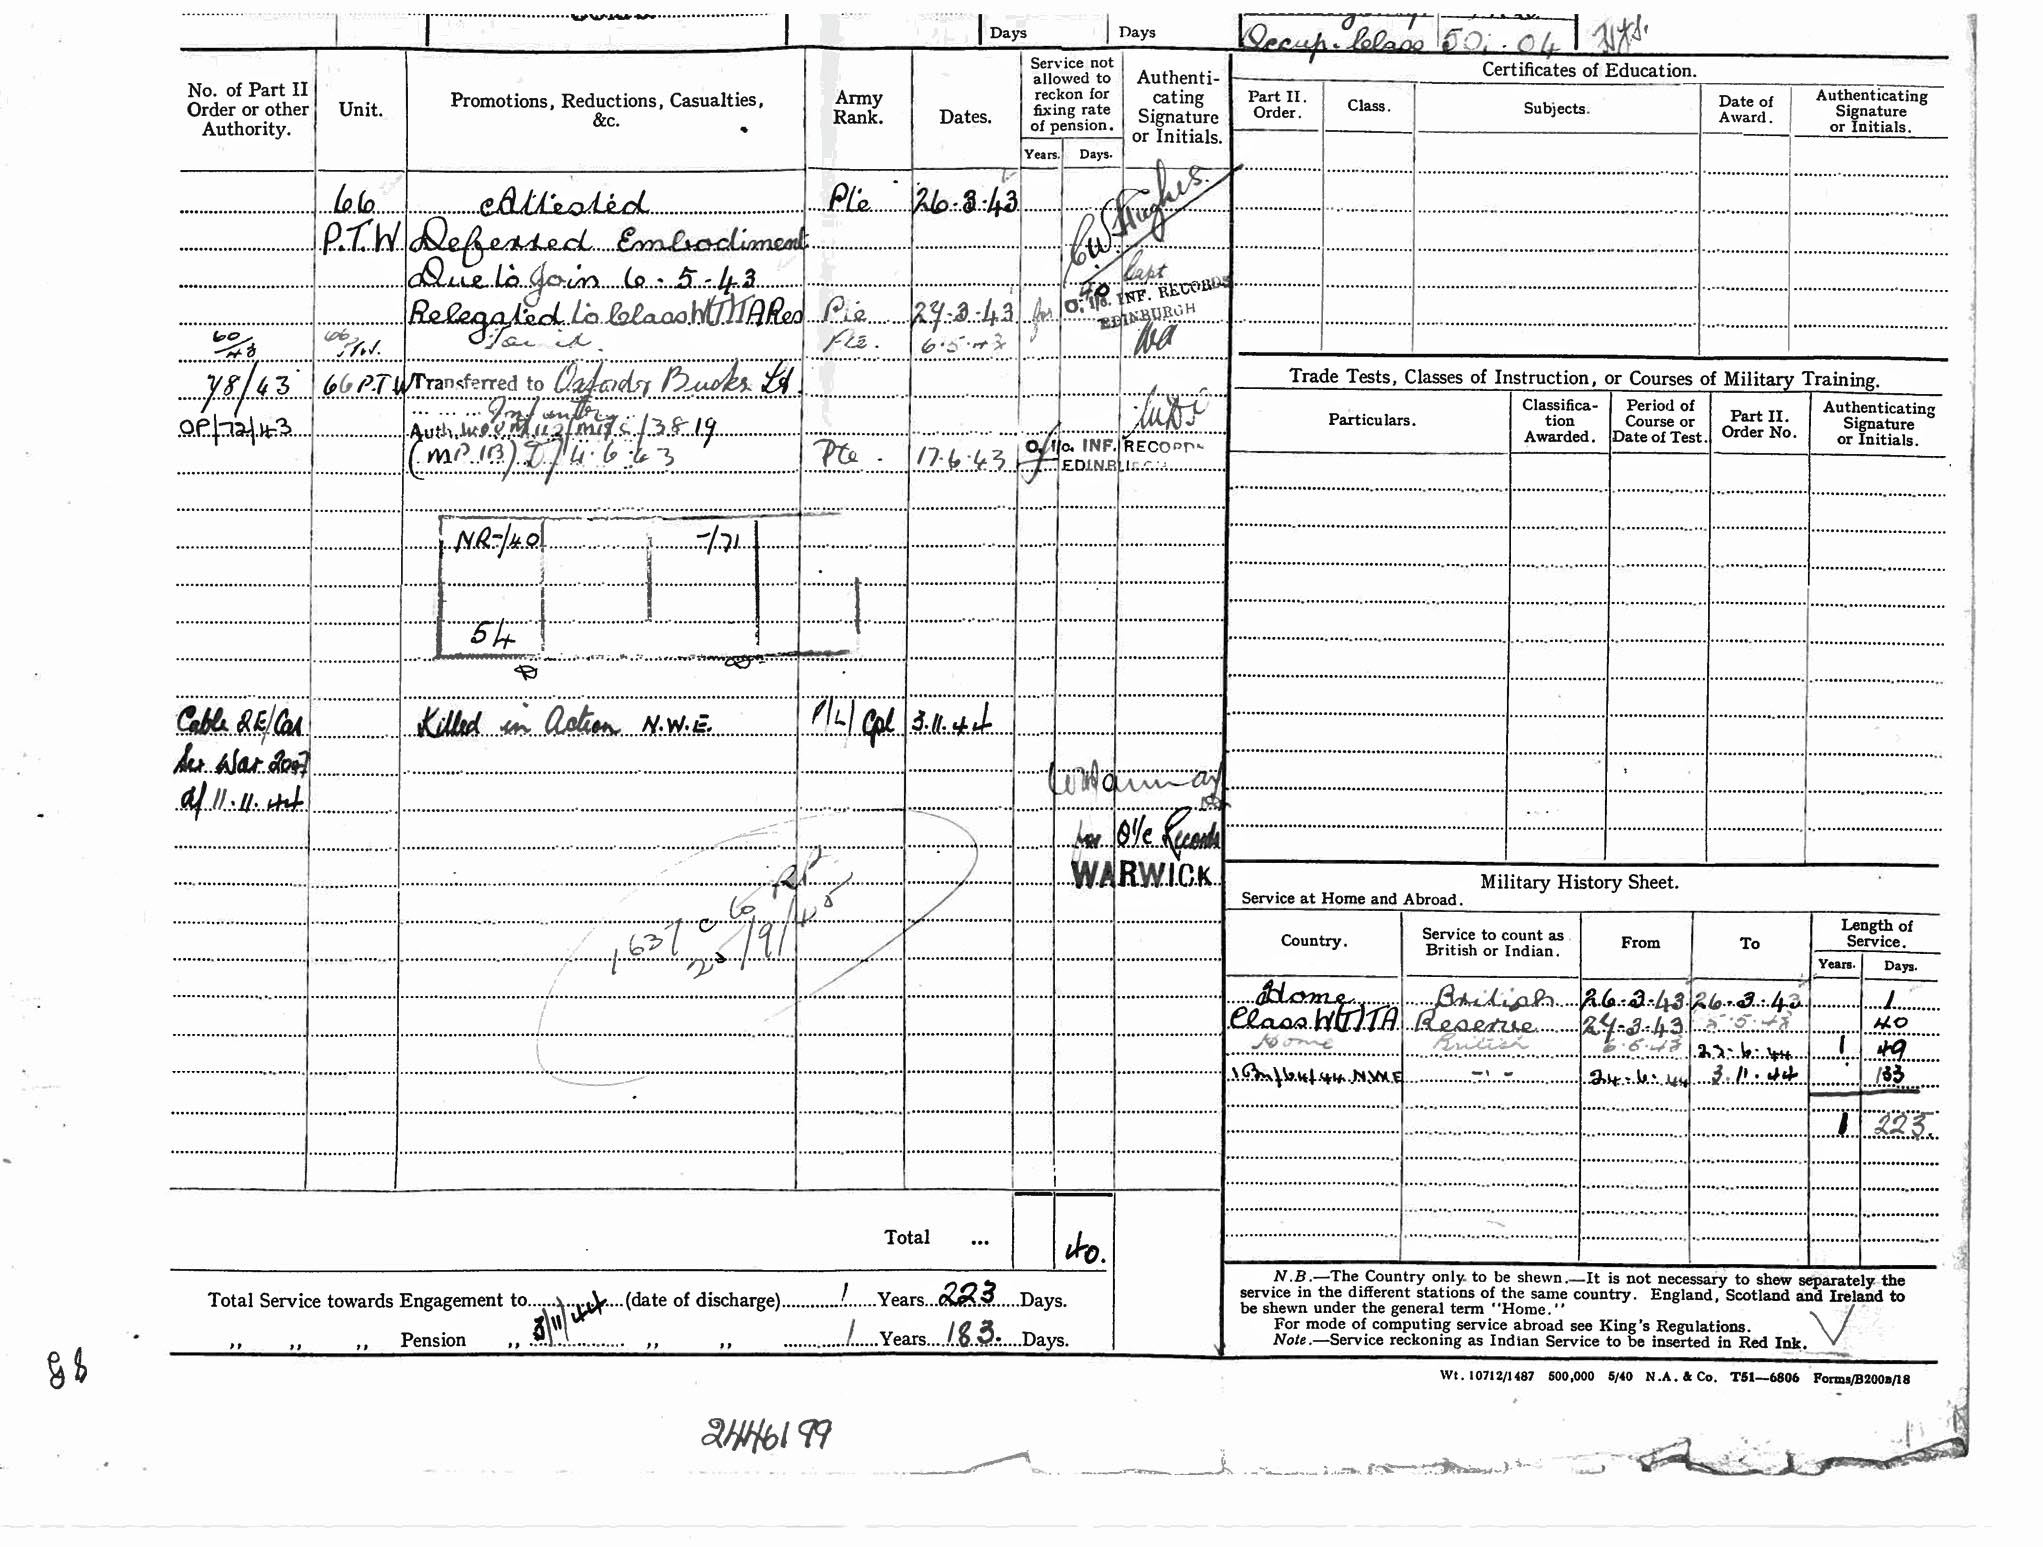 Days Days
Occup. Class 50i. 04
No. of Part II Order or other Authority. Unit. Promotions, Reductions, Casualties, &c. Army Rank. Dates. Service not allowed to reckon for fixing rate of pension. Authenti-cating Signature or Initials.
Years. Days.
66 Attested Pte 26-3-43
P.T.W Deferred Embodiment
C.W. Hughes.
Due to join 6-5-43
40 Capt
Relegated to Class W(T)TA Res Pte 27-3-43 for O. i/c. INF. RECORDS
EDINBURGH
60/43 66 Pte. 6.5.43
78/43 66 P.T.W Transferred to Oxford & Bucks Lt.
Infantry
OP/72/43 Auth. 3819
(MP 113) D/ 4.6.43 Pte. 17.6.43 O. i/c. INF. RECORDS
EDINBURGH
NR-/40 -/71
54
Cable 2E/Cas Killed in Action N.W.E. P/L/Cpl 3.11.44
War
d/ 11.11.44
for O i/c Records
WARWICK
Total ... 40.
Total Service towards Engagement to 3/11/44 (date of discharge) 1 Years 223 Days.
,, ,, ,, Pension ,, ,, ,, 1 Years 183. Days.
Certificates of Education.
Part II. Order. Class. Subjects. Date of Award. Authenticating Signature or Initials.
Trade Tests, Classes of Instruction, or Courses of Military Training.
Particulars. Classifica-tion Awarded. Period of Course or Date of Test. Part II. Order No. Authenticating Signature or Initials.
Military History Sheet.
Service at Home and Abroad.
Country. Service to count as British or Indian. From To Length of Service.
Years. Days.
Home British 26-3-43 26-3-43 1
Class W(T)TA Reserve 27-3-43 5-5-43 40
Home British 6-5-43 23-6-44 1 49
N.W.E -"- 24-6-44 3.11.44 133
1 223.
N.B.—The Country only to be shewn.—It is not necessary to shew separately the
service in the different stations of the same country. England, Scotland and Ireland to
be shewn under the general term "Home."
For mode of computing service abroad see King's Regulations.
Note.—Service reckoning as Indian Service to be inserted in Red Ink.
Wt. 10712/1487 500,000 5/40 N.A. & Co. T51—6806 Forms/B200B/18
2446199